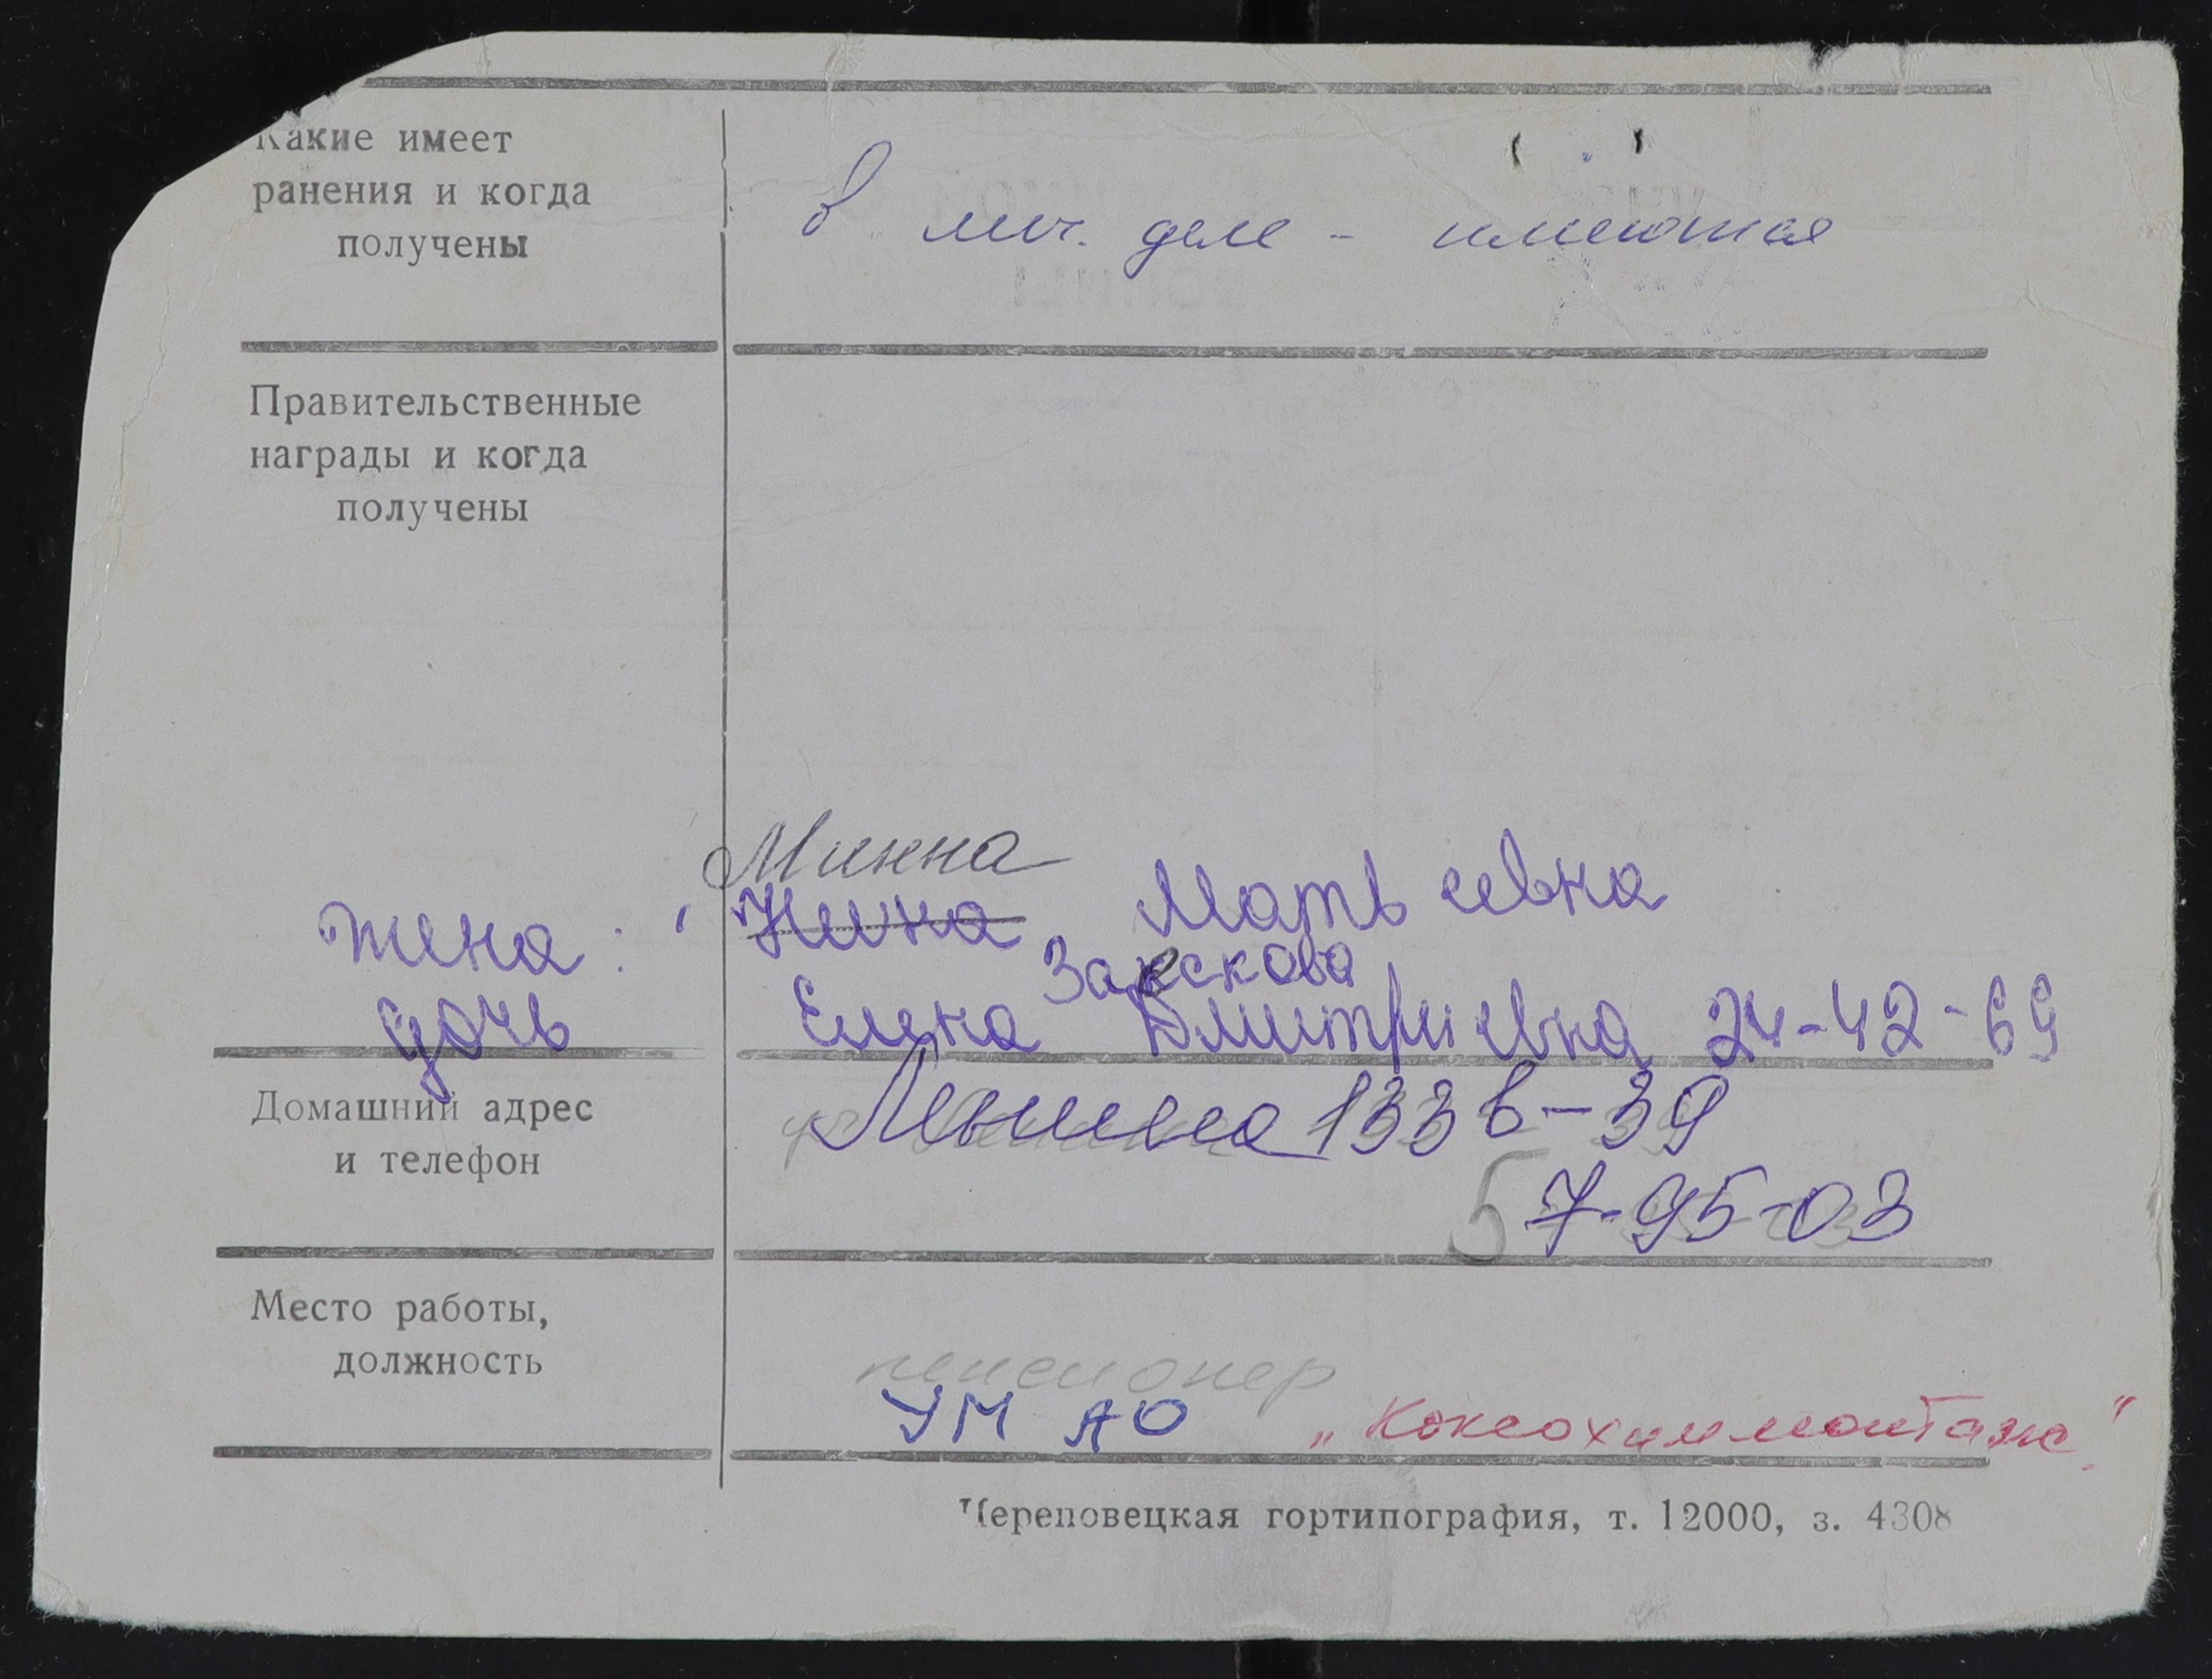 Какие имеет
ранения и когда
получены
в лич. деле - имеются
Правительственные
награды и когда
получены
Минна
жена: Нина Матвеевна
дочь Елена Дмитриевна 24-42-69
Домашний адрес
и телефон
Ленина 133 в-39
5 7-95-03
Место работы,
должность
пенсионер
УМ АО „Коксохиммонтаж"
Череповецкая гортипография, т. 12000, з. 4308